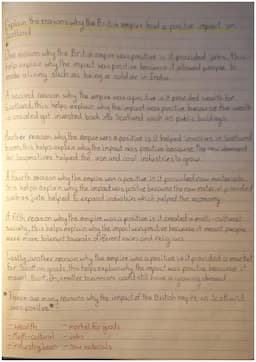 Explain the reasons why the British empire had a positive impact on
Scotland
One reason why the British empire was positive is it provided jobs. This
help explain why the impact was positive because it allowed people to
make a living such as being a soldier in India.
A second reason why the empire was a positive is it provided wealth for
Scotland, this helps explain why the impact was positive because the wealth
it created got invested back into Scotland such as public buildings.
Another reason why the empire was a positive is it helped industries in Scotland
boom, this helps explain why the impact was positive because the new demand
for locomotives helped the iron and coal industries to grow.
A fourth reason why the empire was a positive is it provided raw materials
this helps explain why the impact was positive because the raw material provided
such as jute helped to expand industries which helped the economy.
A fifth reason why the empire was a positive is it created a multi-cultural
society, this helps explain why the impact was positive because it meant people
were more tolerant towards different races and religions.
Lastly another reason why the empire was a positive is it provided a market
for Scottish goods, this helps explain why the impact was positive because it
meant that smaller businesses could still have a growing demand
* There are many reasons why the impact of the British empire on Scotland
was positive *
- Wealth - market for goods
- Multi-cultural - jobs
- industry boom - raw materials